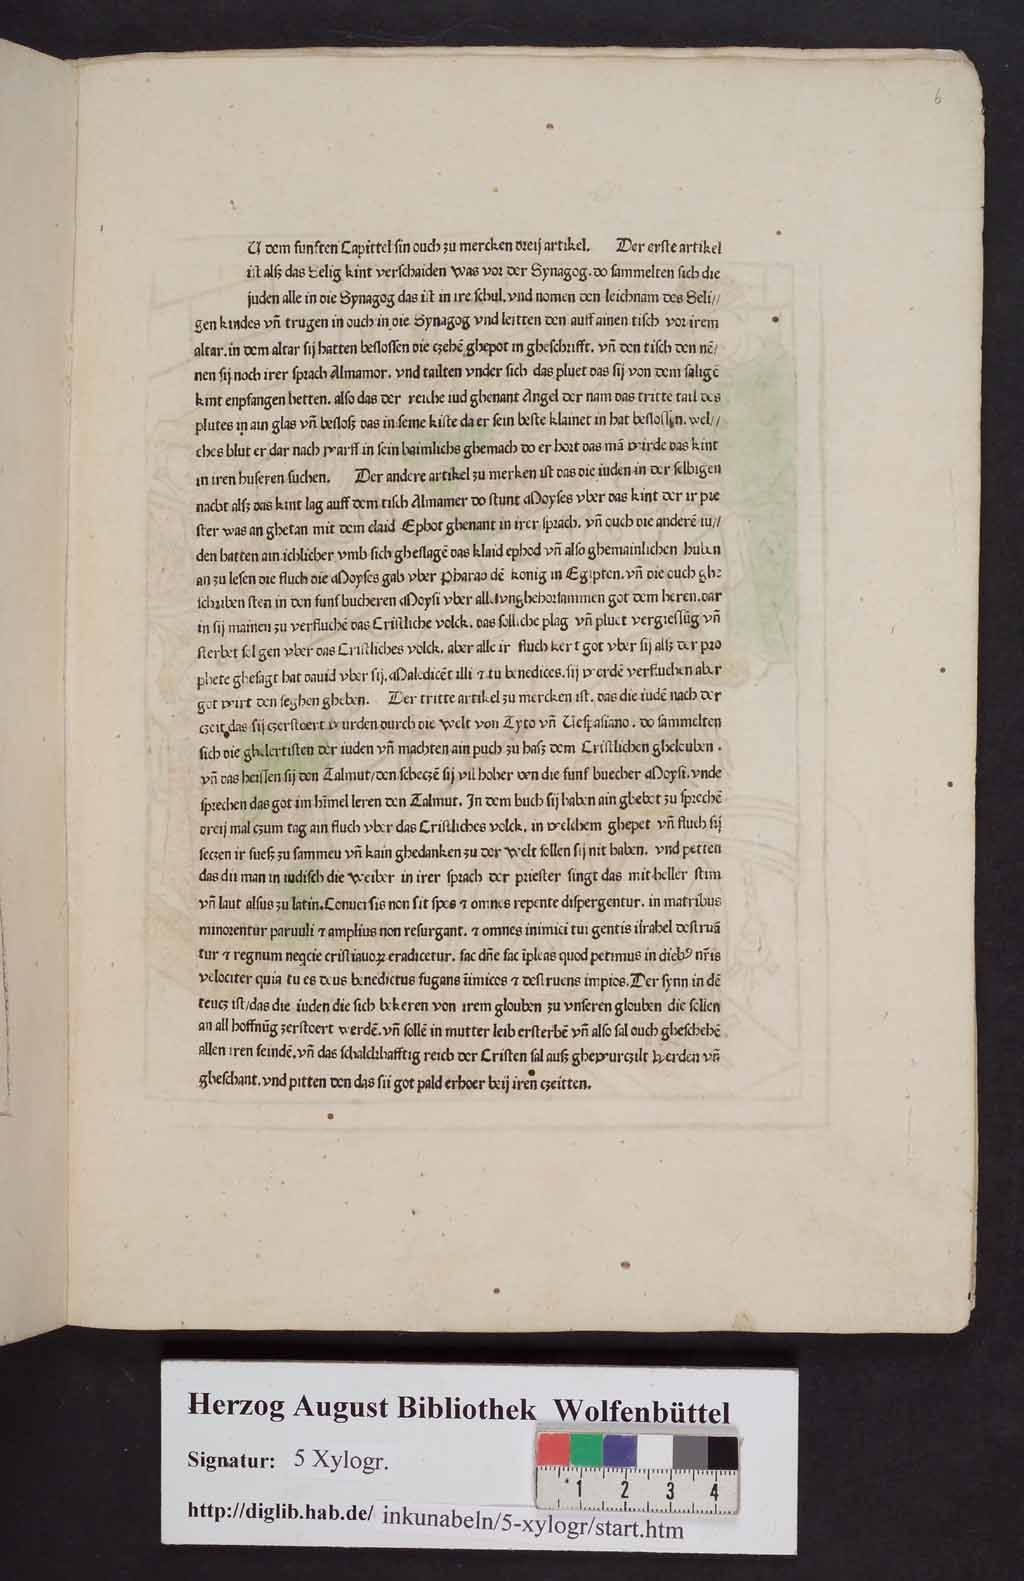 6
U dem funften Capittel sin ouch zu mercken dreij artikel. Der erste artikel
ist alsz das Selig kint verschaiden was vor der Synagog. do sammelten sich die
juden alle in die Synagog das ist in ire schul. vnd nomen den leichnam des Seli//
gen kindes vn̄ trugen in ouch in die Synagog vnd leitten den auff ainen tisch vor irem
altar. in dem altar sij hatten beslossen die czehē ghepot in gheschrifft. vn̄ den tisch den nē/
nen sij noch irer sprach Almamor. vnd tailten vnder sich das pluet das sij von dem saligē
kint enpfangen hetten. also das der reiche iud ghenant Angel der nam das tritte tail des
plutes in ain glas vn̄ beslosz das in seine kiste da er sein beste klainet in hat beslossen. wel//
ches blut er dar nach warff in sein haimlichs ghemach do er hort das mā wirde das kint
in iren huseren suchen. Der andere artikel zu merken ist das die iuden in der selbigen
nacht alsz das kint lag auff dem tisch Almamer do stunt Moyses vber das kint der ir prie
ster was an ghetan mit dem claid Ephot ghenant in irer sprach. vn̄ ouch die anderē iu//
den hatten ain ichlicher vmb sich gheslagē das klaid ephod vn̄ also ghemainlichen huben
an zu lesen die fluch die Moyses gab vber Pharao dē konig in Egipten. vn̄ die ouch ghe
schriben sten in den funf bucheren Moysi vber all vnghehorsammen got dem heren. dar
in sij mainen zu verfluchē das Cristliche volck. das solliche plag vn̄ pluet vergiessūg vn̄
sterbet solgen vber das Cristliches volck. aber alle ir fluch kert got vber sij alsz der pro
phete ghesagt hat dauid vber sij. Maledicēt illi ⁊ tu benedices. sij werdē verfluchen aber
got wirt den seghen gheben. Der tritte artikel zu mercken ist. das die iudē nach der
czeit das sij czerstoert wurden durch die welt von Tyto vn̄ Uespasiano. do sammelten
sich die ghelertisten der iuden vn̄ machten ain puch zu hasz dem Cristlichen ghelouben.
vn̄ das heissen sij den Talmut/den scheczē sij vil hoher den die funf buecher Moysi. vnde
sprechen das got im hīmel leren den Talmut. In dem buch sij haben ain ghebet zu sprechē
dreij mal czum tag ain fluch vber das Cristliches volck. in welchem ghepet vn̄ fluch sij
seczen ir suesz zu sammeu vn̄ kain ghedanken zu der welt sollen sij nit haben. vnd petten
das du man in iudisch die weiber in irer sprach der priester singt das mit heller stim
vn̄ laut alsus zu latin. Conuersis non sit spes ⁊ omnes repente dispergentur. in matribus
minorentur paruuli ⁊ amplius non resurgant. ⁊ omnes inimici tui gentis israhel destruā
tur ⁊ regnum neqcie cristiauoꝝ eradicetur. fac dn̄e fac īpleas quod petimus in diebꝰ nr̄is
velociter quia tu es deus benedictus fugans īimicos ⁊ destruens impios. Der synn in dē
teucz ist/das die iuden die sich bekeren von irem glouben zu vnseren glouben die sollen
an all hoffnūg zerstoert werdē. vn̄ sollē in mutter leib ersterbē vn̄ also sal ouch gheschehē
allen iren feindē. vn̄ das schalckhafftig reich der Cristen sal ausz ghewurczilt werden vn̄
gheschant. vnd pitten den das sii got pald erhoer beij iren czeitten.
Herzog August Bibliothek Wolfenbüttel
Signatur: 5 Xylogr.
http://diglib.hab.de/ inkunabeln/5-xylogr/start.htm
1 2 3 4